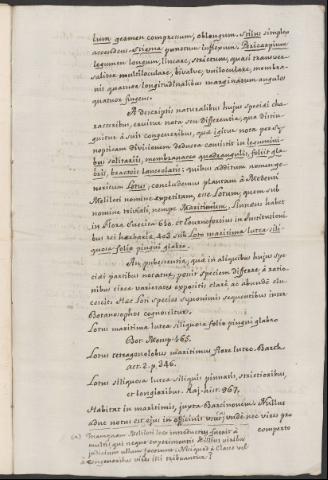 lum, geamen compressum, oblongum. Stilus simplex
accendens. Stigma punctum inflexum. Pericarpium
legumen longum, lineare, strictum, quasi transver-
saliter multiloculare, bivalve, uniloculare, membra-
nis quatuor longitudinalibus marginatum angulos
quatuor fingens.
A descriptis naturalibus hujus speciei cha-
racteribus, eruitur nota seu differentia, qua distin-
guitur à suis congeneribus, quæ igitur nota per Sy-
nopticam divisionem deducta consistit in legumini-
bus solitariis, membranaceo quadrangulis, foliis gla-
bris, bracteis lanceolatis; quibus additum nomen ge-
nericum Lotus, concludemus plantam à
Meliloti nomine expetitam, esse Lotum, quem sub
nomine triviali, nempe Maritimum, Linnæus habet
in Flora Suecica 680. et Tournefortius in Institutioni-
bus rei herbariæ 403. sub Loto maritima lutea sili-
quosa folio pingui glabro.
An pubescentia, quæ in aliquibus hujus spe-
ciei partibus notatur, possit speciem differre, à ratio-
nibus circa varietates expositis clarè ac abundè elu-
cescit. Hæc Loti species synonimis sequentibus inter
Botanosophos cognoscitur.
Lotus maritima lutea siliquosa folio pingui glabro
Bot. Monsp. 465.
Lotus tetragonolobus maritimus flore luteo. Barth.
act. 2. p. 346.
Lotus siliquosa lutea siliquis pinnatis, strictioribus,
et longioribus. Raj. hist. 967.
Habitat in maritimis, juxta Barcinonem. Nullus
adhuc notus est ejus in officinis usus; undè nec vires pro
comperto
(a) Meliloti loco introductus fuerit à
multis qui neque experimentis illius viribus
judicium ullum fecerunt
congeneribus vires illi tribuantur?